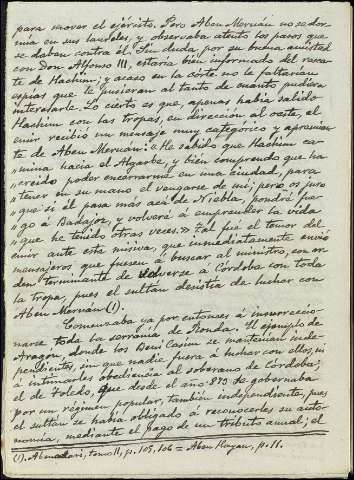 para mover el ejército. Pero Aben Meruán no se dor-
mía en sus laureles, y observaba atento los pasos que
se daban contra él. Sin duda, por su buena amistad
con Don Alfonso III, estaría bien informado del resca-
te de Hachim; y acaso en la corte no le faltarían
espías que le pusieran al tanto de cuanto pudiera
interesarle. Lo cierto es que, apenas había salido
Hachim con las tropas, en dirección al oeste, el
emir recibió un mensaje muy categórico y apremian-
te de Aben Meruán: «He sabido que Hachim ca-
»mina hacia el Algarbe, y bien comprendo que ha
»creído poder encerrarme en una ciudad, para
»tener en su mano el vengarse de mí; pero os juro
»que si él pasa más acá de Niebla, pondré fue-
»go á Badajoz, y volveré á emprender la vida
»que he tenido otras veces.» Tal fué el temor del
emir ante esta misiva, que inmediatamente envió
mensajeros que fuesen á buscar al ministro, con or-
den terminante de volverse a Córdoba con toda
la tropa, pues el sultán desistía de luchar con
Aben Meruán (1).
Comenzaba ya por entonces á insurreccio-
narse toda la serranía de Ronda. El ejemplo de
Aragón, donde los Beni Casim se mantenían inde-
pendientes, sin que nadie fuera á luchar con ellos, ni
á intimarles obediencia al soberano de Córdoba;
el de Toledo, que desde el año 873 se gobernaba
por un régimen popular, también independiente, pues
el sultán se había obligado á reconocerles su auto-
nomía, mediante el pago de un tributo anual; el
(1). Almacari, tomo II, p. 105, 106 = Aben Hayan, p. 11.